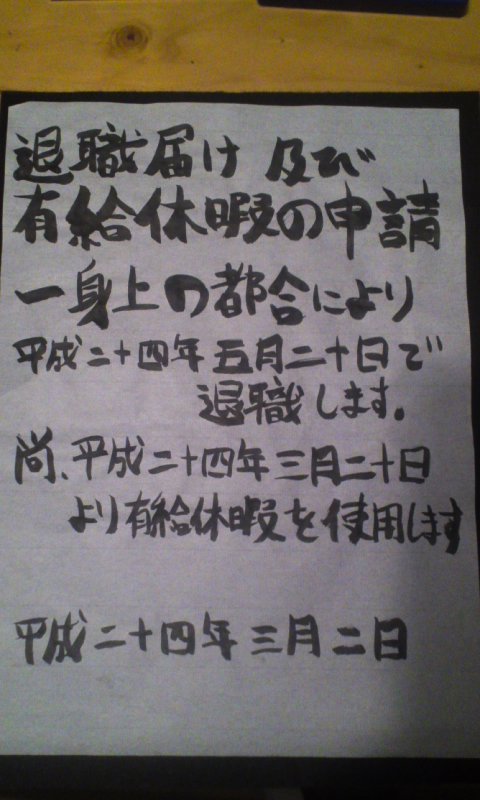 退職届け 及び
有給休暇の申請
一身上の都合により
平成二十四年 五月二十日で
退職します。
尚、平成二十四年 三月二十日
より有給休暇を使用します
平成二十四年 三月二日